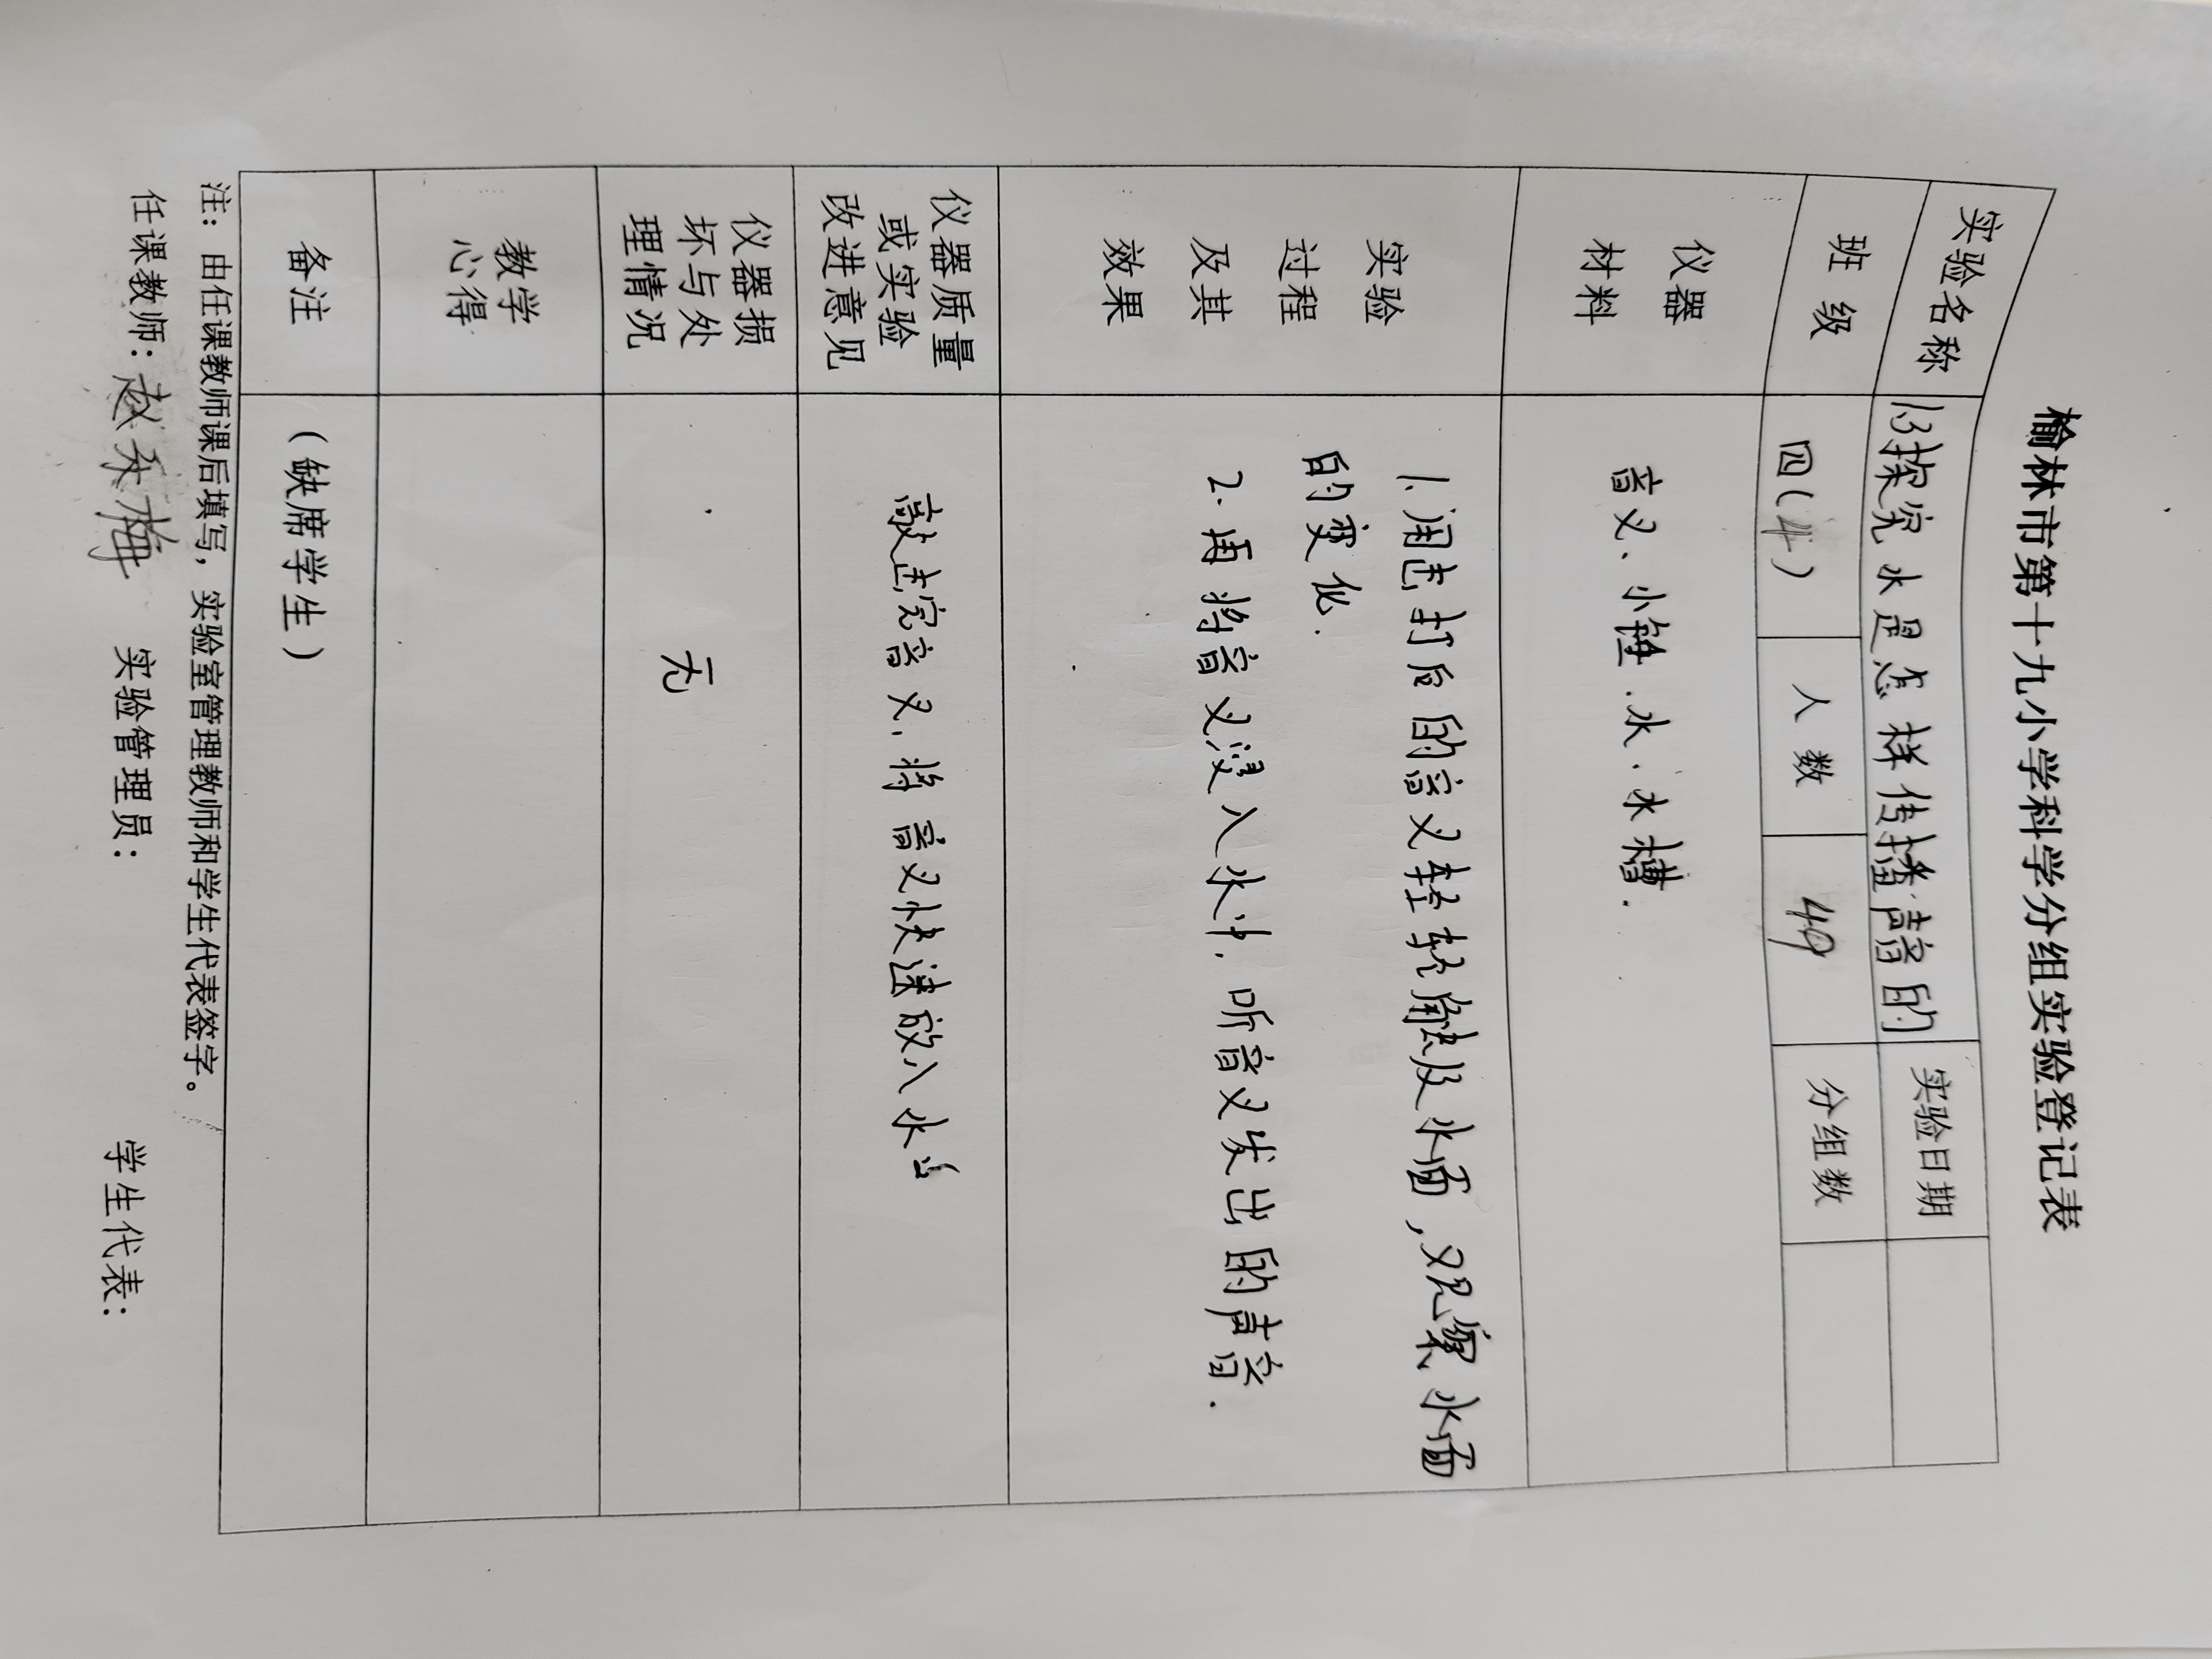 榆林市第十九小学科学分组实验登记表
实验名称 13探究水是怎样传播声音的 实验日期
班 级 四(4) 人 数 49 分组数
仪器
材料
音叉、小锤.水.水槽.
实验
过程
及其
效果
1.用击打后的音叉轻轻触及水面,观察水面
的变化.
2.再将音叉浸入水中,听音叉发出的声音.
仪器质量
或实验
改进意见
敲击完音叉,将音叉快速放入水与
仪器损
坏与处
理情况
无
教学
心得
备注 (缺席学生)
注:由任课教师课后填写,实验室管理教师和学生代表签字。
任课教师:赵 梅 实验管理员: 学生代表: